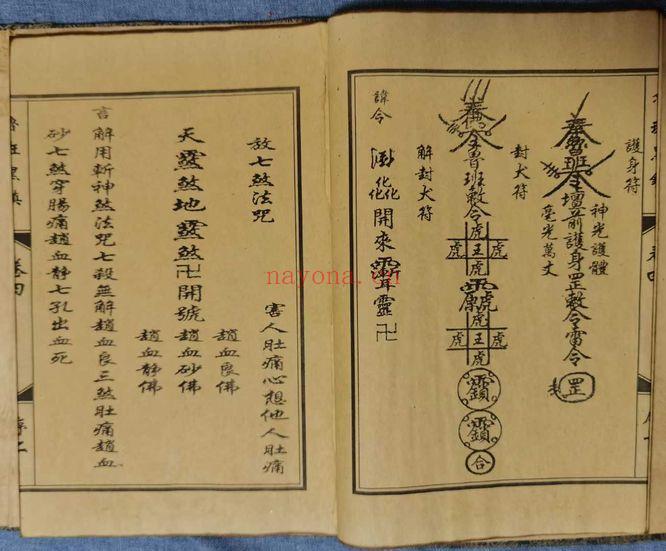 護身符
神光護體
毫光萬丈
奉魯班令壇前護身罡敕令雷令
罡
封犬符
魯班敕令
虎
虎王虎
虎
虎
虎王虎
虎
鎖
鎖
合
解封犬符
諱令
開來
靈卍
放七煞法咒
害人肚痛心想他人肚痛
趙血良佛
天靈煞地靈煞卍開號
趙血砂佛
趙血静佛
言
解用斬神煞法咒七殺無解趙血良三煞肚痛趙血
砂七煞穿腸痛趙血静七孔出血死
卷四
nayona.cn